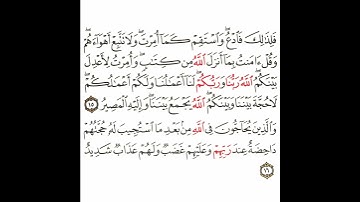 فَلِذَٰلِكَ فَٱدْعُ ۖ وَٱسْتَقِمْ كَمَآ أُمِرْتَ ۖ وَلَا تَتَّبِعْ أَهْوَآءَهُمْ ۖ
وَقُلْ ءَامَنتُ بِمَآ أَنزَلَ ٱللَّهُ مِن كِتَٰبٍ ۖ وَأُمِرْتُ لِأَعْدِلَ
بَيْنَكُمُ ۖ ٱللَّهُ رَبُّنَا وَرَبُّكُمْ ۖ لَنَآ أَعْمَٰلُنَا وَلَكُمْ أَعْمَٰلُكُمْ ۖ
لَا حُجَّةَ بَيْنَنَا وَبَيْنَكُمُ ۖ ٱللَّهُ يَجْمَعُ بَيْنَنَا ۖ وَإِلَيْهِ ٱلْمَصِيرُ ١٥
وَٱلَّذِينَ يُحَآجُّونَ فِى ٱللَّهِ مِنۢ بَعْدِ مَا ٱسْتُجِيبَ لَهُۥ حُجَّتُهُمْ
دَاحِضَةٌ عِندَ رَبِّهِمْ وَعَلَيْهِمْ غَضَبٌ وَلَهُمْ عَذَابٌ شَدِيدٌ ١٦